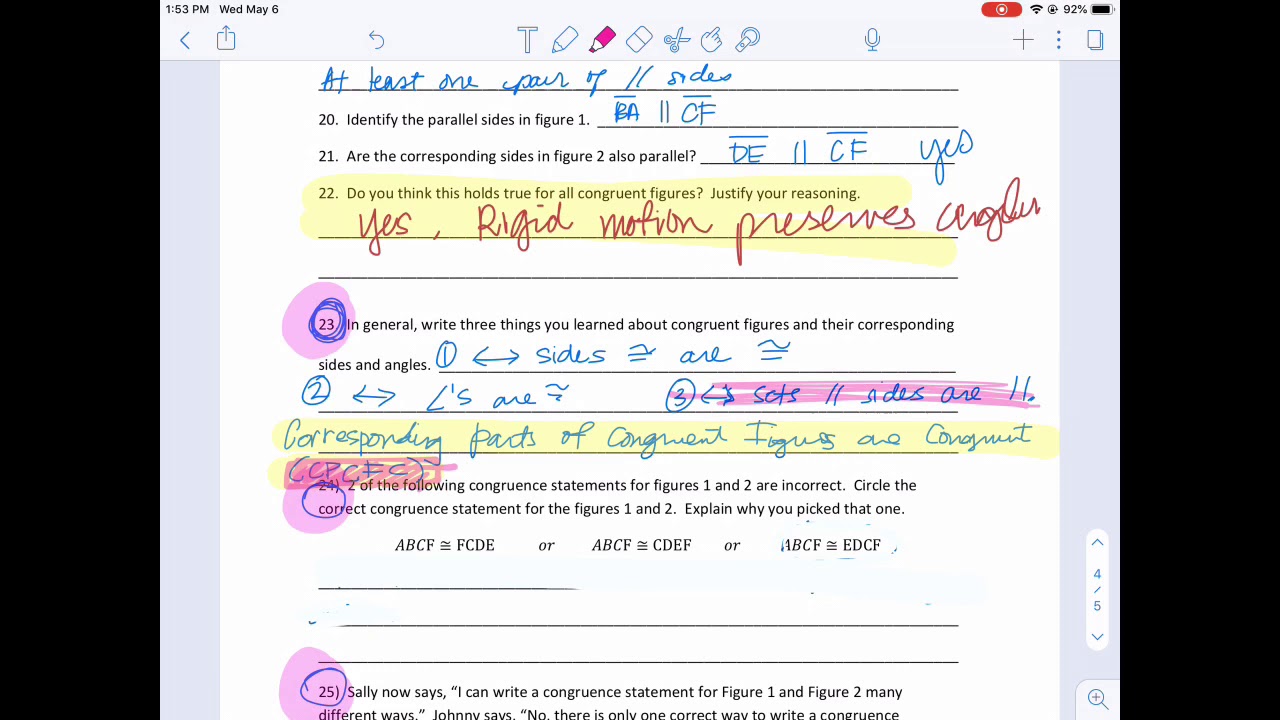 1:53 PM Wed May 6
92%
At least one pair of // sides
20. Identify the parallel sides in figure 1. BA || CF
21. Are the corresponding sides in figure 2 also parallel? DE || CF yes
22. Do you think this holds true for all congruent figures? Justify your reasoning.
yes, Rigid motion preserves
23. In general, write three things you learned about congruent figures and their corresponding
sides and angles. ① ↔ sides ≅ are ≅
② ↔ ∠'s are ≅ ③ ↔ sets // sides are //.
Corresponding parts of Congruent Figures are Congruent
(CPCFC)
24) 2 of the following congruence statements for figures 1 and 2 are incorrect. Circle the
correct congruence statement for the figures 1 and 2. Explain why you picked that one.
ABCF ≅ FCDE or ABCF ≅ CDEF or ABCF ≅ EDCF
25) Sally now says, “I can write a congruence statement for Figure 1 and Figure 2 many
different ways.” Johnny says, “No, there is only one correct way to write a congruence
4
/
5